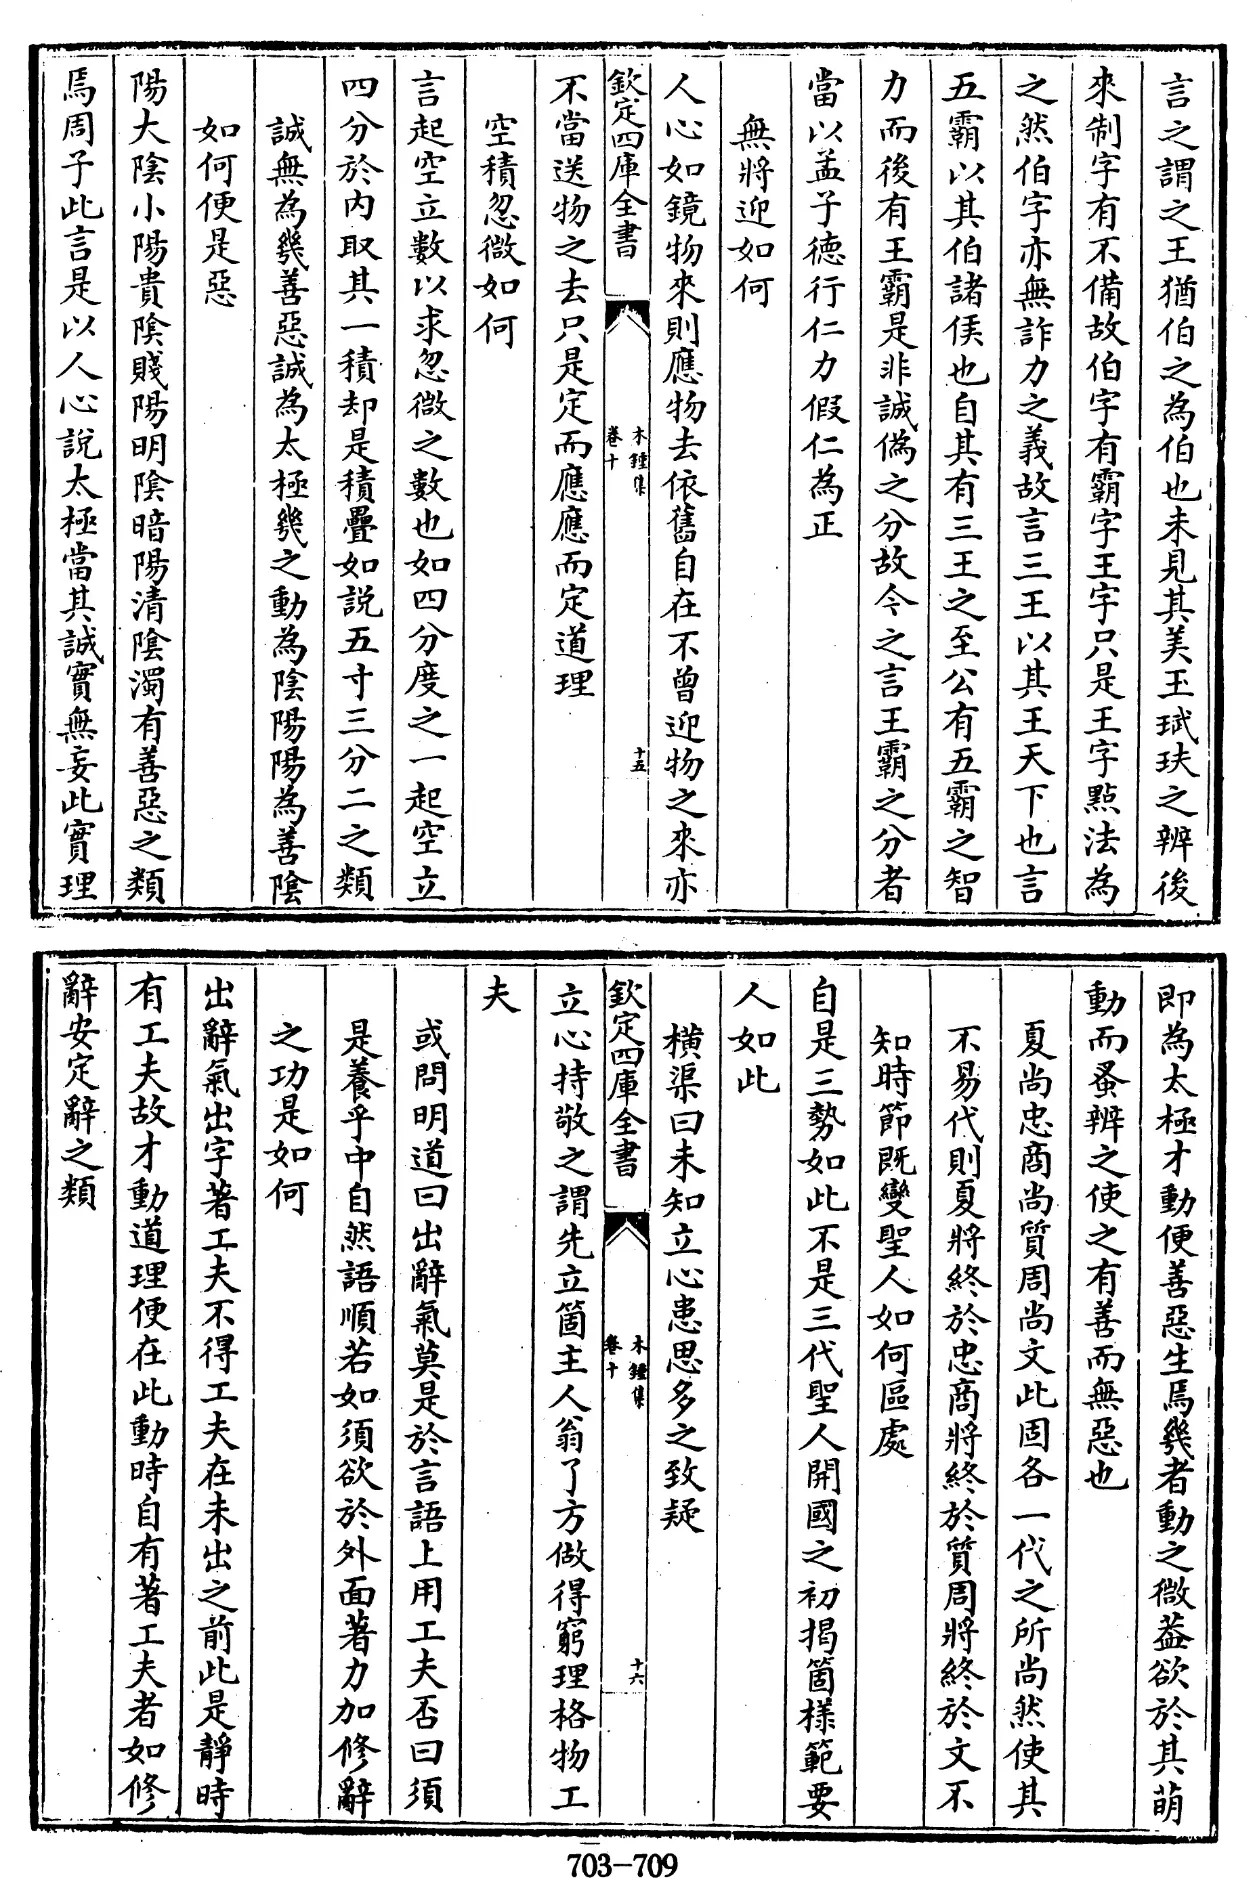 言之謂之王猶伯之為伯也未見其美玉珷玞之辨後
來制字有不備故伯字有霸字王字只是王字點法為
之然伯字亦無詐力之義故言三王以其王天下也言
五霸以其伯諸侯也自其有三王之至公有五霸之智
力而後有王霸是非誠偽之分故今之言王霸之分者
當以孟子德行仁力假仁為正
無將迎如何
人心如鏡物來則應物去依舊自在不曾迎物之來亦
欽定四庫全書
木鍾集
卷十
十五
不當送物之去只是定而應應而定道理
空積忽微如何
言起空立數以求忽微之數也如四分度之一起空立
四分於內取其一積却是積疊如說五寸三分二之類
誠無為幾善惡誠為太極幾之動為陰陽陽為善陰
如何便是惡
陽大陰小陽貴陰賤陽明陰暗陽清陰濁有善惡之類
焉周子此言是以人心說太極當其誠實無妄此實理
即為太極才動便善惡生焉幾者動之微葢欲於其萌
動而蚤辨之使之有善而無惡也
夏尚忠商尚質周尚文此固各一代之所尚然使其
不易代則夏將終於忠商將終於質周將終於文不
知時節既變聖人如何區處
自是三勢如此不是三代聖人開國之初揭箇樣範要
人如此
橫渠曰未知立心患思多之致疑
欽定四庫全書
木鍾集
卷十
十六
立心持敬之謂先立箇主人翁了方做得窮理格物工
夫
或問明道曰出辭氣莫是於言語上用工夫否曰須
是養乎中自然語順若如須欲於外面著力加修辭
之功是如何
出辭氣出字著工夫不得工夫在未出之前此是靜時
有工夫故才動道理便在此動時自有著工夫者如修
辭安定辭之類
703-709